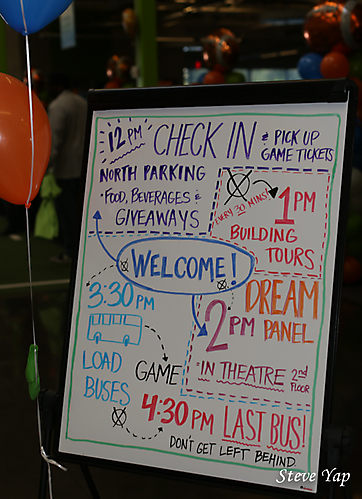 12 PM CHECK IN & PICK UP
GAME TICKETS
NORTH PARKING
· FOOD, BEVERAGES &
GIVEAWAYS
EVERY 30 MINS!
1PM
BUILDING
TOURS
WELCOME!
3:30 PM
LOAD
BUSES
DREAM
2PM PANEL
· IN THEATRE 2nd
FLOOR
GAME
4:30 PM LAST BUS!
DON'T GET LEFT BEHIND
Steve Yap